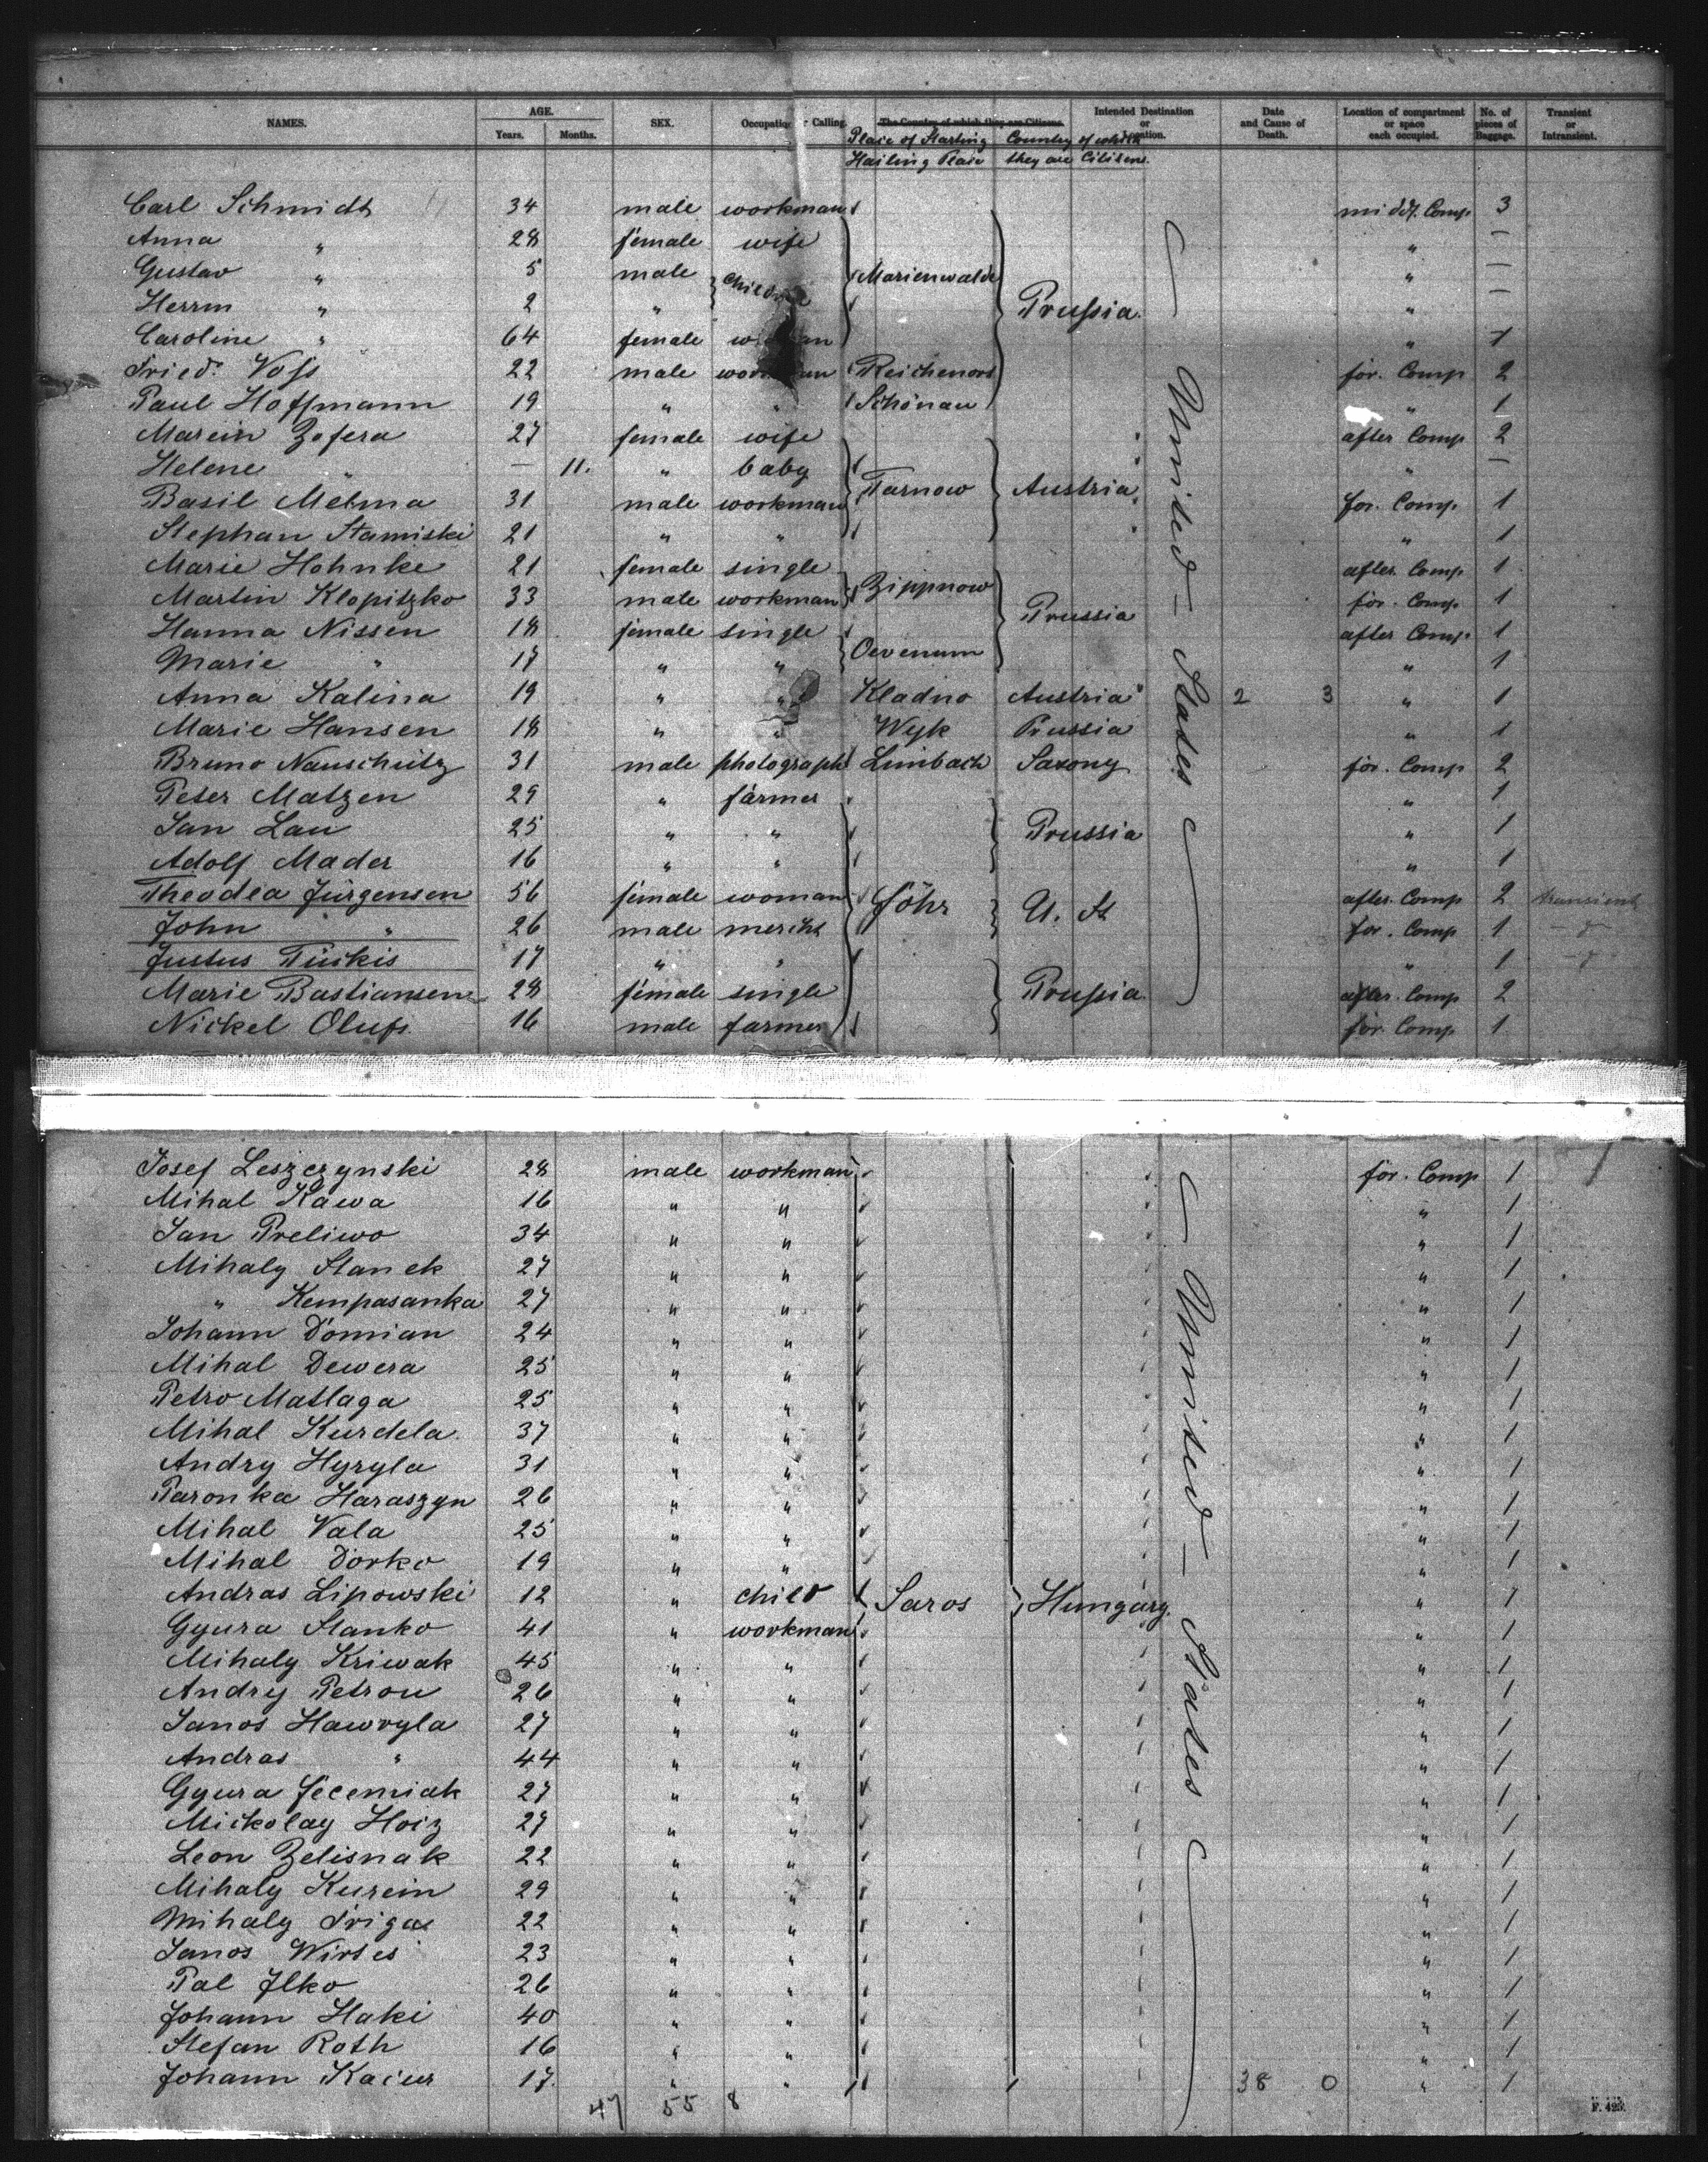 NAMES. AGE. Years. Months. SEX. Occupation or Calling. The Country of which they are Citizens. Intended Destination or Location. Date and Cause of Death. Location of compartment or space each occupied. No. of pieces of Baggage. Transient or Intransient.
Place of Starting Country of which
Hailing Place they are Citisens.
Carl Schmidt 34 male workman midd. Comp. 3
Anna " 28 female wife " —
Gustav " 5 male children Marienwalde " —
Herrm " 2 " Prussia. " —
Caroline " 64 female woman " 1
Fried. Voss 22 male workman for. Comp 2
Paul Hoffmann 19 " " Schönau " 1
Marein Zofera 27 female wife after Comp 2
Helene " — 11. " baby " —
Basil Melma 31 male workman Tarnow Austria for. Comp. 1
Stephan Stamiski 21 " " " 1
Marie Hohnke 21 female single after. Comp 1
Martin Klopitzko 33 male workman Zippnow Prussia for. Comp 1
Hanna Nissen 18 female single after Comp. 1
Marie " 17 " " Oevenum " 1
Anna Kalina 19 " " Kladno Austria 2 3 " 1
Marie Hansen 18 " " Wyk Prussia " 1
Bruno Nauschütz 31 male photograph Limbach Saxony for. Comp 2
Peter Matzen 29 " farmer " 1
Jan Lau 25 " " Prussia " 1
Adolf Mader 16 " " " 1
Theodea Jürgensen 56 female woman Föhr U. St after. Comp 2 transient
John " 26 male mercht for. Comp 1
Justus Türkis 17 " " " 1
Marie Bastiansen 28 female single Prussia after. Comp 2
Nickel Olufs 16 male farmer for. Comp 1
United – States
Josef Leszczynski 28 male workman for. Comp 1
Mihal Kawa 16 " " " 1
Jan Preliwo 34 " " " 1
Mihaly Stanek 27 " " " 1
" Kempasanka 27 " " " 1
Johann Domian 24 " " " 1
Mihal Dewera 25 " " " 1
Petro Matlaga 25 " " " 1
Mihal Kurdela 37 " " " 1
Andry Hyryla 31 " " " 1
Paronka Haraszyn 26 " " " 1
Mihal Vala 25 " " " 1
Mihal Dorko 19 " " " 1
Andras Lipowski 12 " child Saros Hungary. " 1
Gyura Stanko 41 " workman " 1
Mihaly Kriwak 45 " " " 1
Andry Petrou 26 " " " 1
Janos Hawryla 27 " " " 1
Andras " 44 " " " 1
Gyura Fecemiak 27 " " " 1
Mickolay Hoiz 27 " " " 1
Leon Zelisnak 22 " " " 1
Mihaly Kurein 29 " " " 1
Mihaly Frigas 22 " " " 1
Janos Wirses 23 " " " 1
Pal Ilko 26 " " " 1
Johann Haki 40 " " " 1
Stefan Roth 16 " " " 1
Johann Kaiur 17. " " 38 0 " 1
47 55 8
United – States
F. 425.